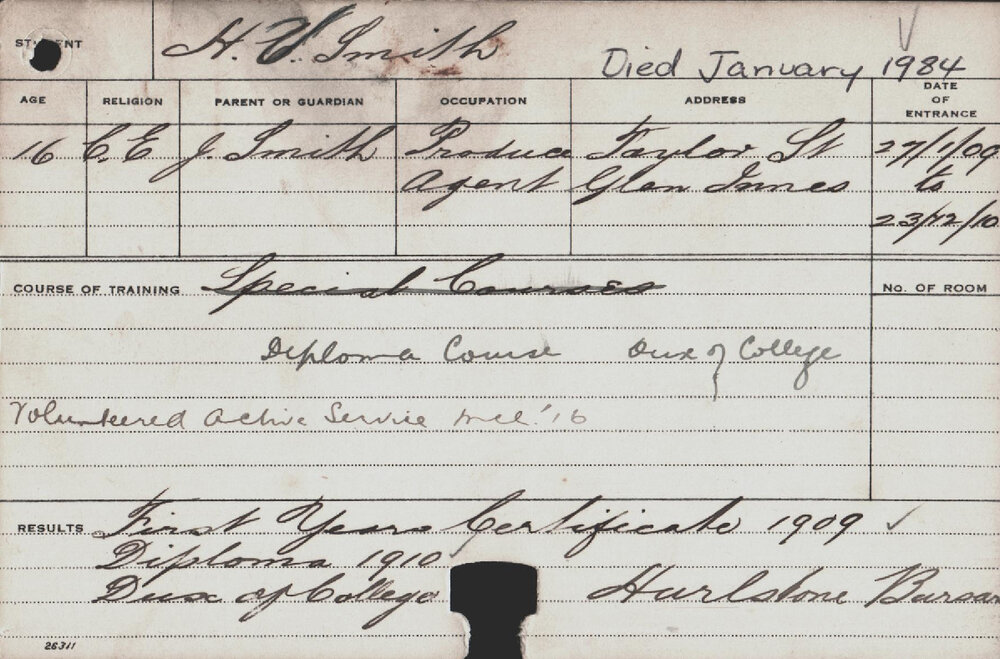 STUDENT H. V. Smith
Died January 1984
AGE RELIGION PARENT OR GUARDIAN OCCUPATION ADDRESS DATE OF ENTRANCE
16 C.E J. Smith Produce Taylor St 27/1/09
Agent Glen Innes to
23/12/10
COURSE OF TRAINING Special Courses No. OF ROOM
Diploma Course Dux of College
Volunteered Active Service '16
RESULTS First Years Certificate 1909
Diploma 1910
Dux of College Hurlstone Bursar
26311